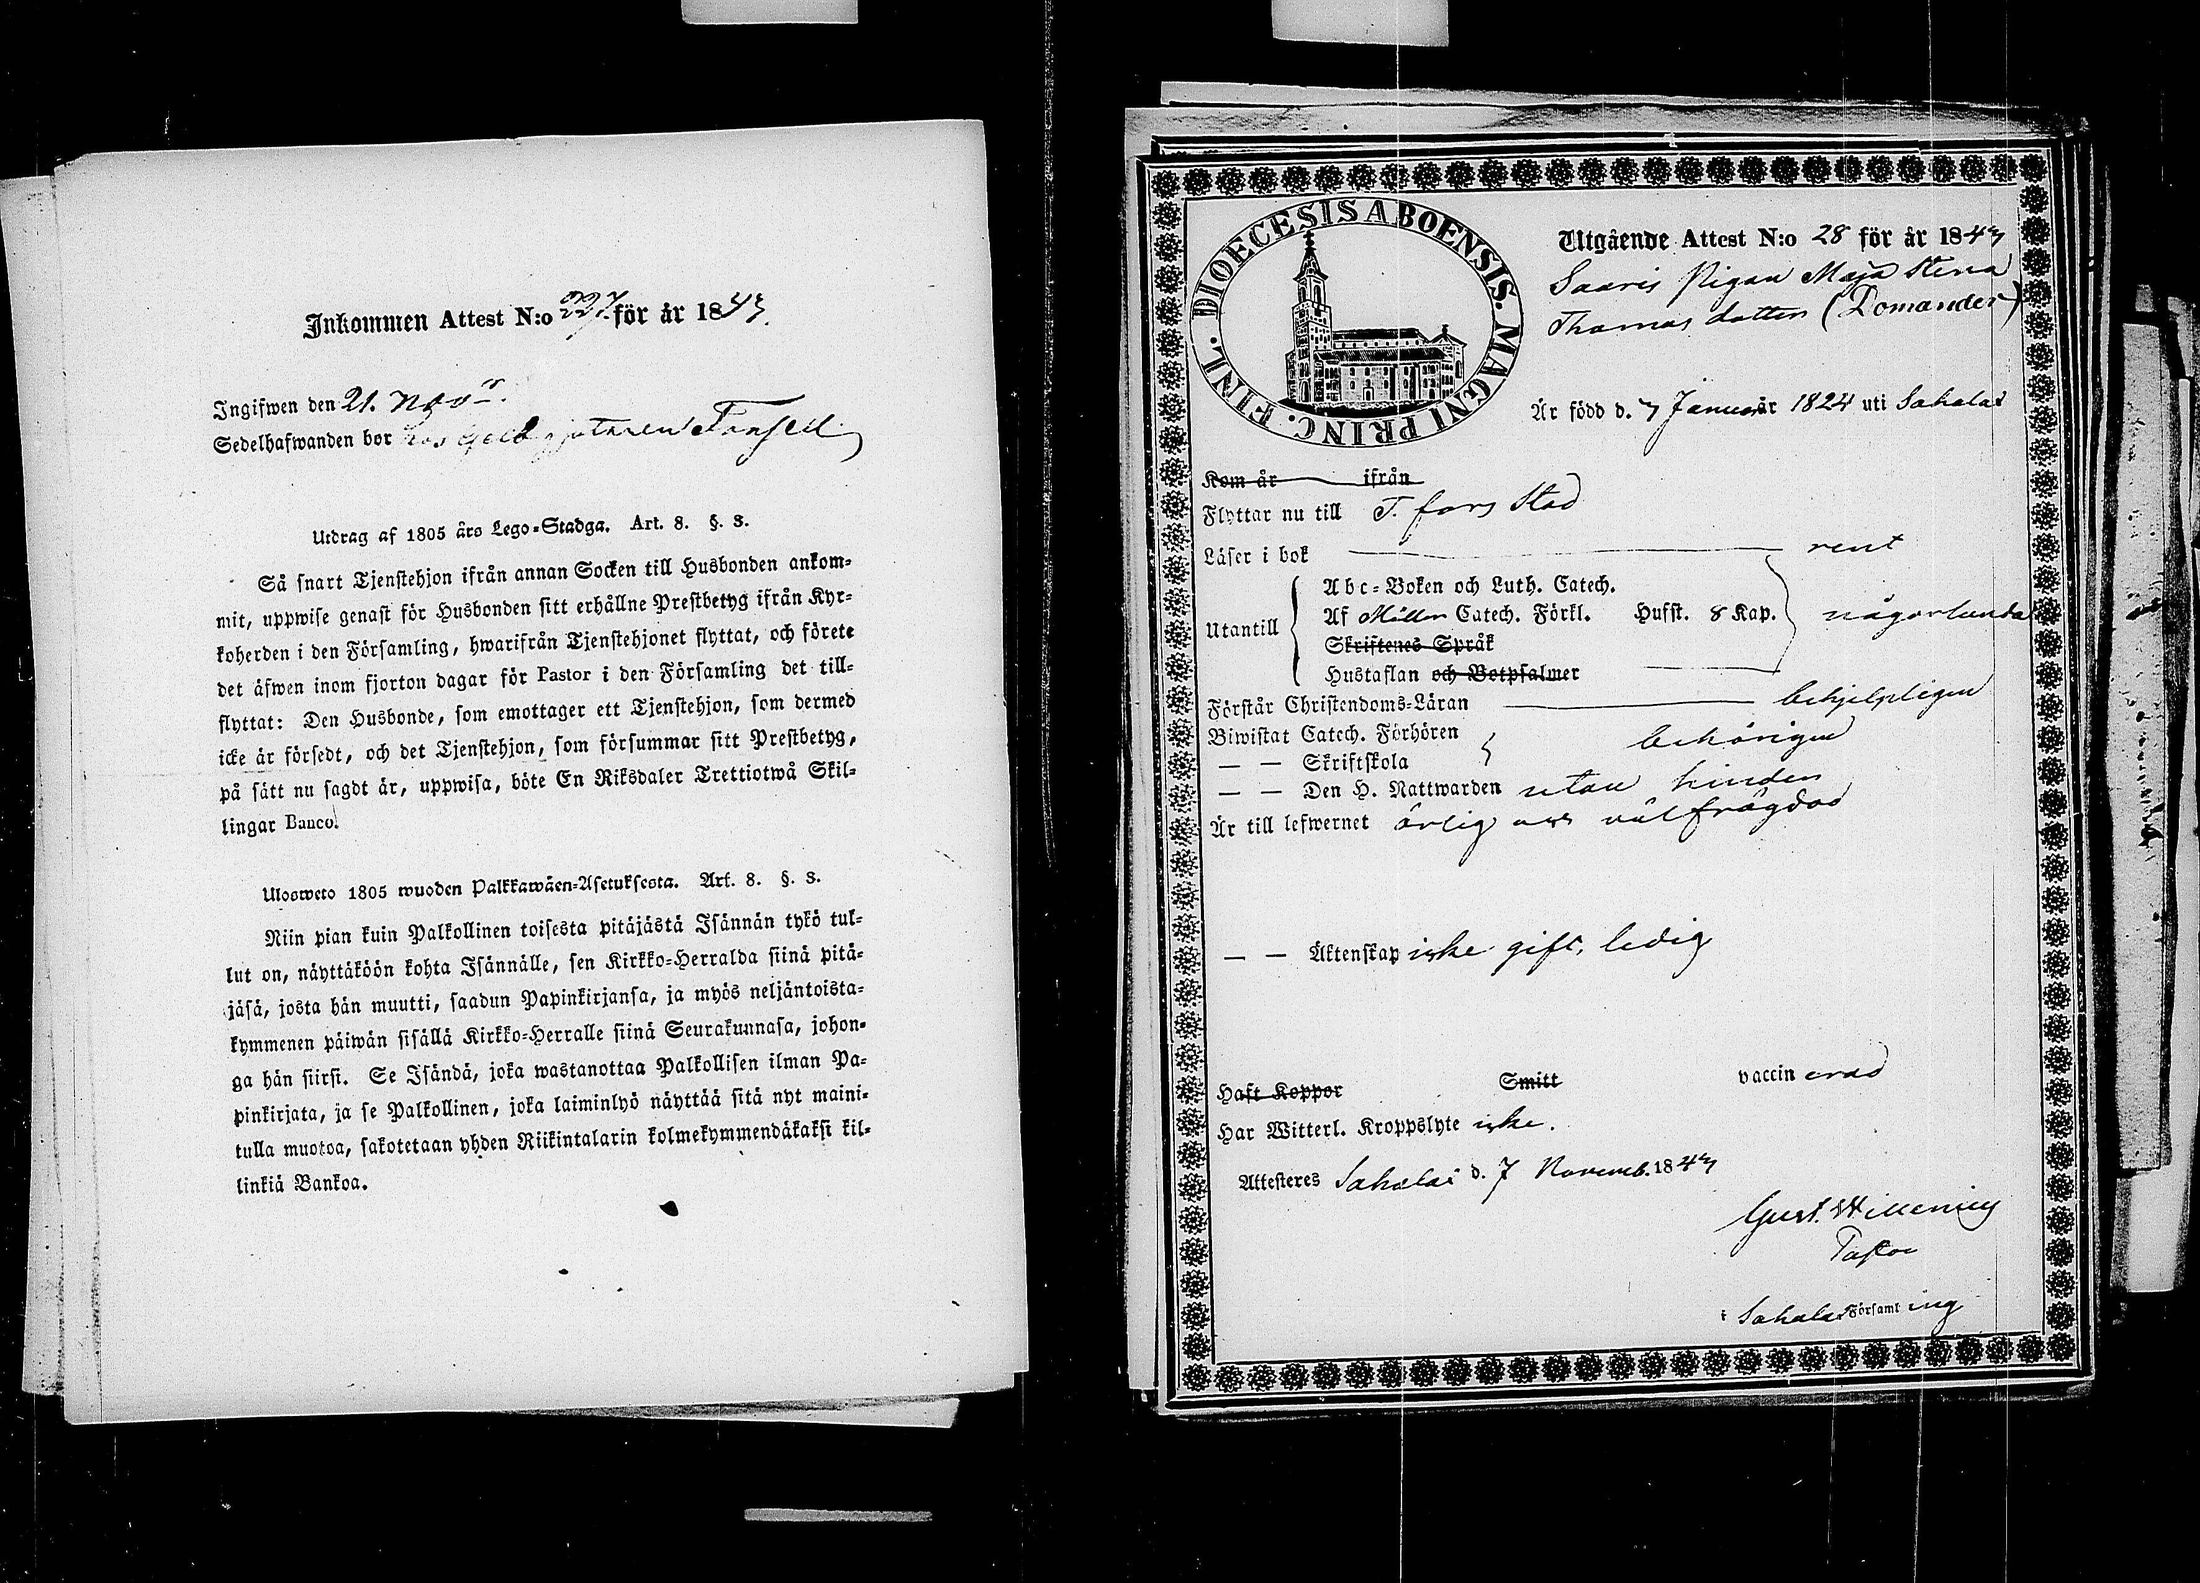 Inkommen Attest N:o 227. för år 1843.
Ingifwen den 21. Nov.
Sedelhafwanden bor hos
Utdrag af 1805 års Lego=Stadga. Art. 8. §. 3.
Så snart Tjenstehjon ifrån annan Socken till Husbonden ankom=
mit, uppwise genast för Husbonden sitt erhållne Prestbetyg ifrån Kyr=
koherden i den Församling, hwarifrån Tjenstehjonet flyttat, och förete
det äfwen inom fjorton dagar för Pastor i den Församling det till=
flyttat: Den Husbonde, som emottager ett Tjenstehjon, som dermed
icke är försedt, och det Tjenstehjon, som försummar sitt Prestbetyg,
på sätt nu sagdt är, uppwisa, böte En Riksdaler Trettiotwå Skil=
lingar Banco.
Ulosweto 1805 wuoden Palkkawäen=Asetuksesta. Art. 8. §. 3.
Niin pian kuin Palkollinen toisesta pitäjästä Isännän tykö tul=
lut on, näyttäköön kohta Isännälle, sen Kirkko=Herralda siinä pitä=
jäsä, josta hän muutti, saadun Papinkirjansa, ja myös neljäntoista=
kymmenen päiwän sisällä Kirkko=Herralle siinä Seurakunnasa, johon=
ga hän siirsi. Se Isändä, joka wastanottaa Palkollisen ilman Pa=
pinkirjata, ja se Palkollinen, joka laiminlyö näyttää sitä nyt maini=
tulla muotoa, sakotetaan yhden Riikintalarin kolmekymmendäkaksi kil=
linkiä Bankoa.
DIOECESIS ABOENSIS. MAGNI PRINC. FINL.
Utgående Attest N:o 28 för år 1843
Saaris Pigan Maja Stena
Thomas dotter (Domander)
År född d. 7 Januar 1824 uti Sahalax
Kom år ifrån
Flyttar nu till T. fors Stad
Läser i bok rent
Abc=Boken och Luth. Catech.
Utantill Af Möller Catech. Förkl. Husst. 8 Kap. någorlunda
Skriftenes Språk
Hustaflan och Botpsalmer
Förstår Christendoms=Läran behjelpligen
Biwistat Catech. Förhören behörigen
— — Skriftskola
— — Den H. Nattwarden utan hinder
Är till lefwernet ärlig och välfrägdad
— — Äktenskap icke gift, ledig
Haft Koppor Smitt vaccinerad
Har Witterl. Kroppslyte icke.
Attesteres Sahalax d. 7 Novemb. 1843
Gust.
Pastor
i Sahalax Församling